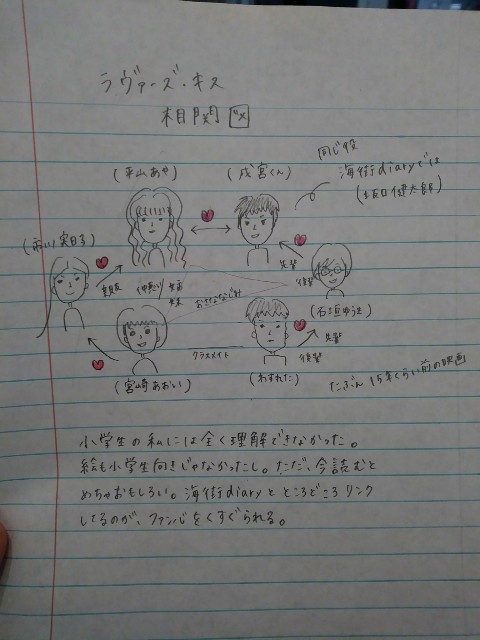 ラヴァーズ・キス
相関図
(平山あや)
(成宮くん)
同じ役
海街diaryでは
(坂口健太郎)
(市川実日子)
親友
仲悪い
姉妹
おさななじみ
先輩
後輩
(石垣ゆうき)
クラスメイト
先輩
後輩
(宮崎あおい)
(わすれた)
たぶん 15年くらい前の映画
小学生の私には全く理解できなかった。
絵も小学生向きじゃなかったし。ただ、今読むと
めちゃおもしろい。海街diaryとところどころリンク
してるのが、ファン心をくすぐられる。